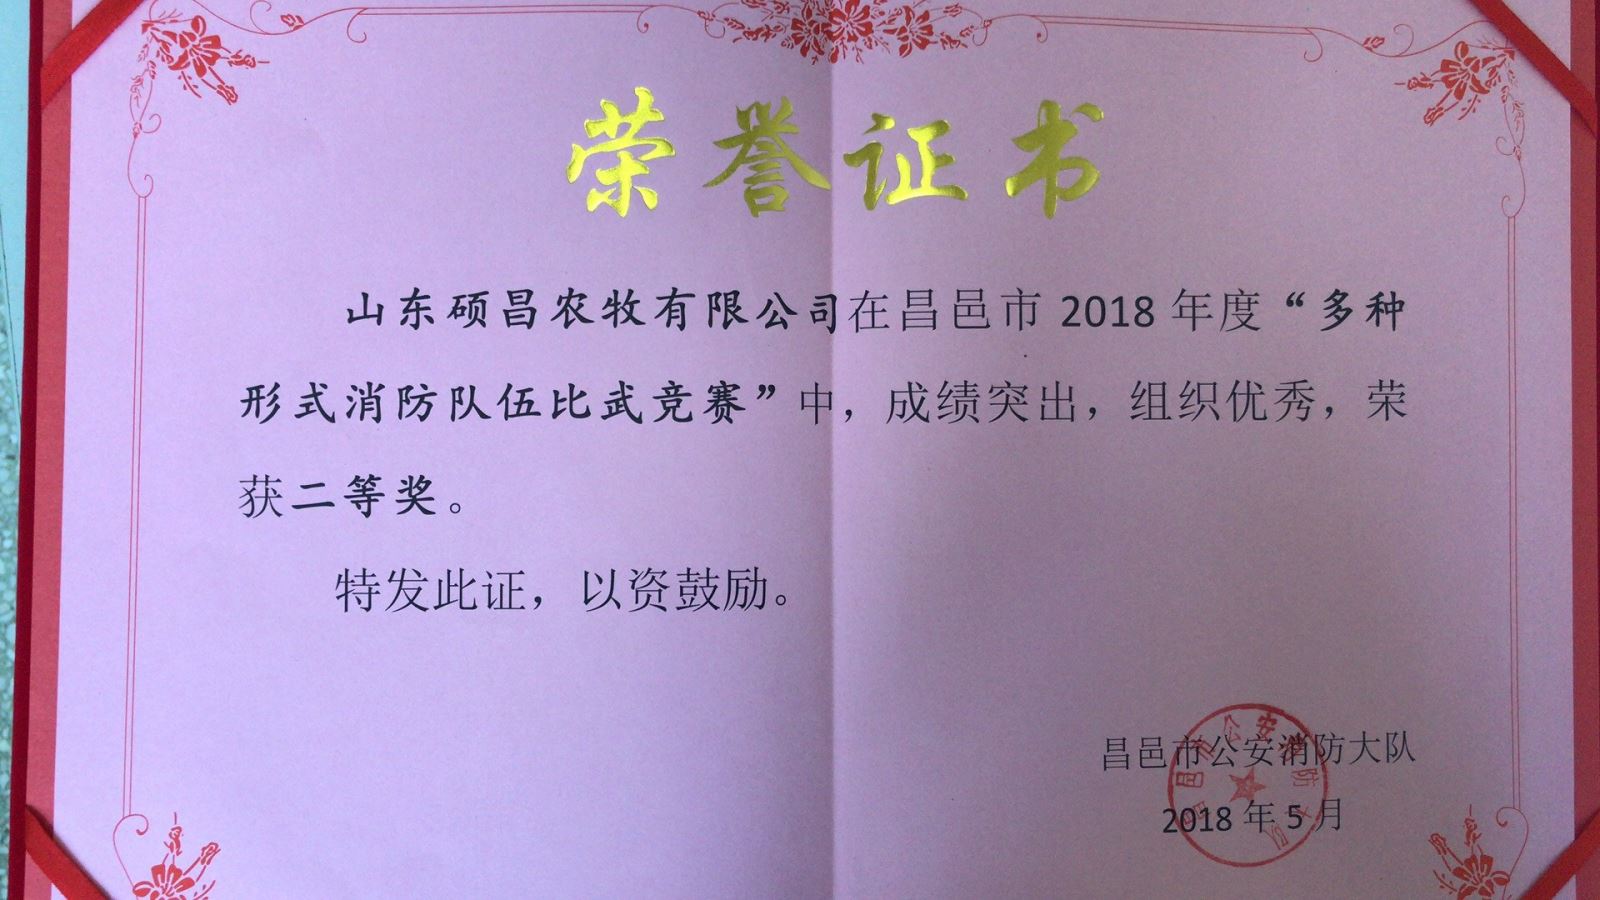 荣誉证书
山东硕昌农牧有限公司在昌邑市 2018 年度“多种
形式消防队伍比武竞赛”中，成绩突出，组织优秀，荣
获二等奖。
特发此证，以资鼓励。
昌邑市公安消防大队
2018 年 5 月
昌邑市公安消防大队